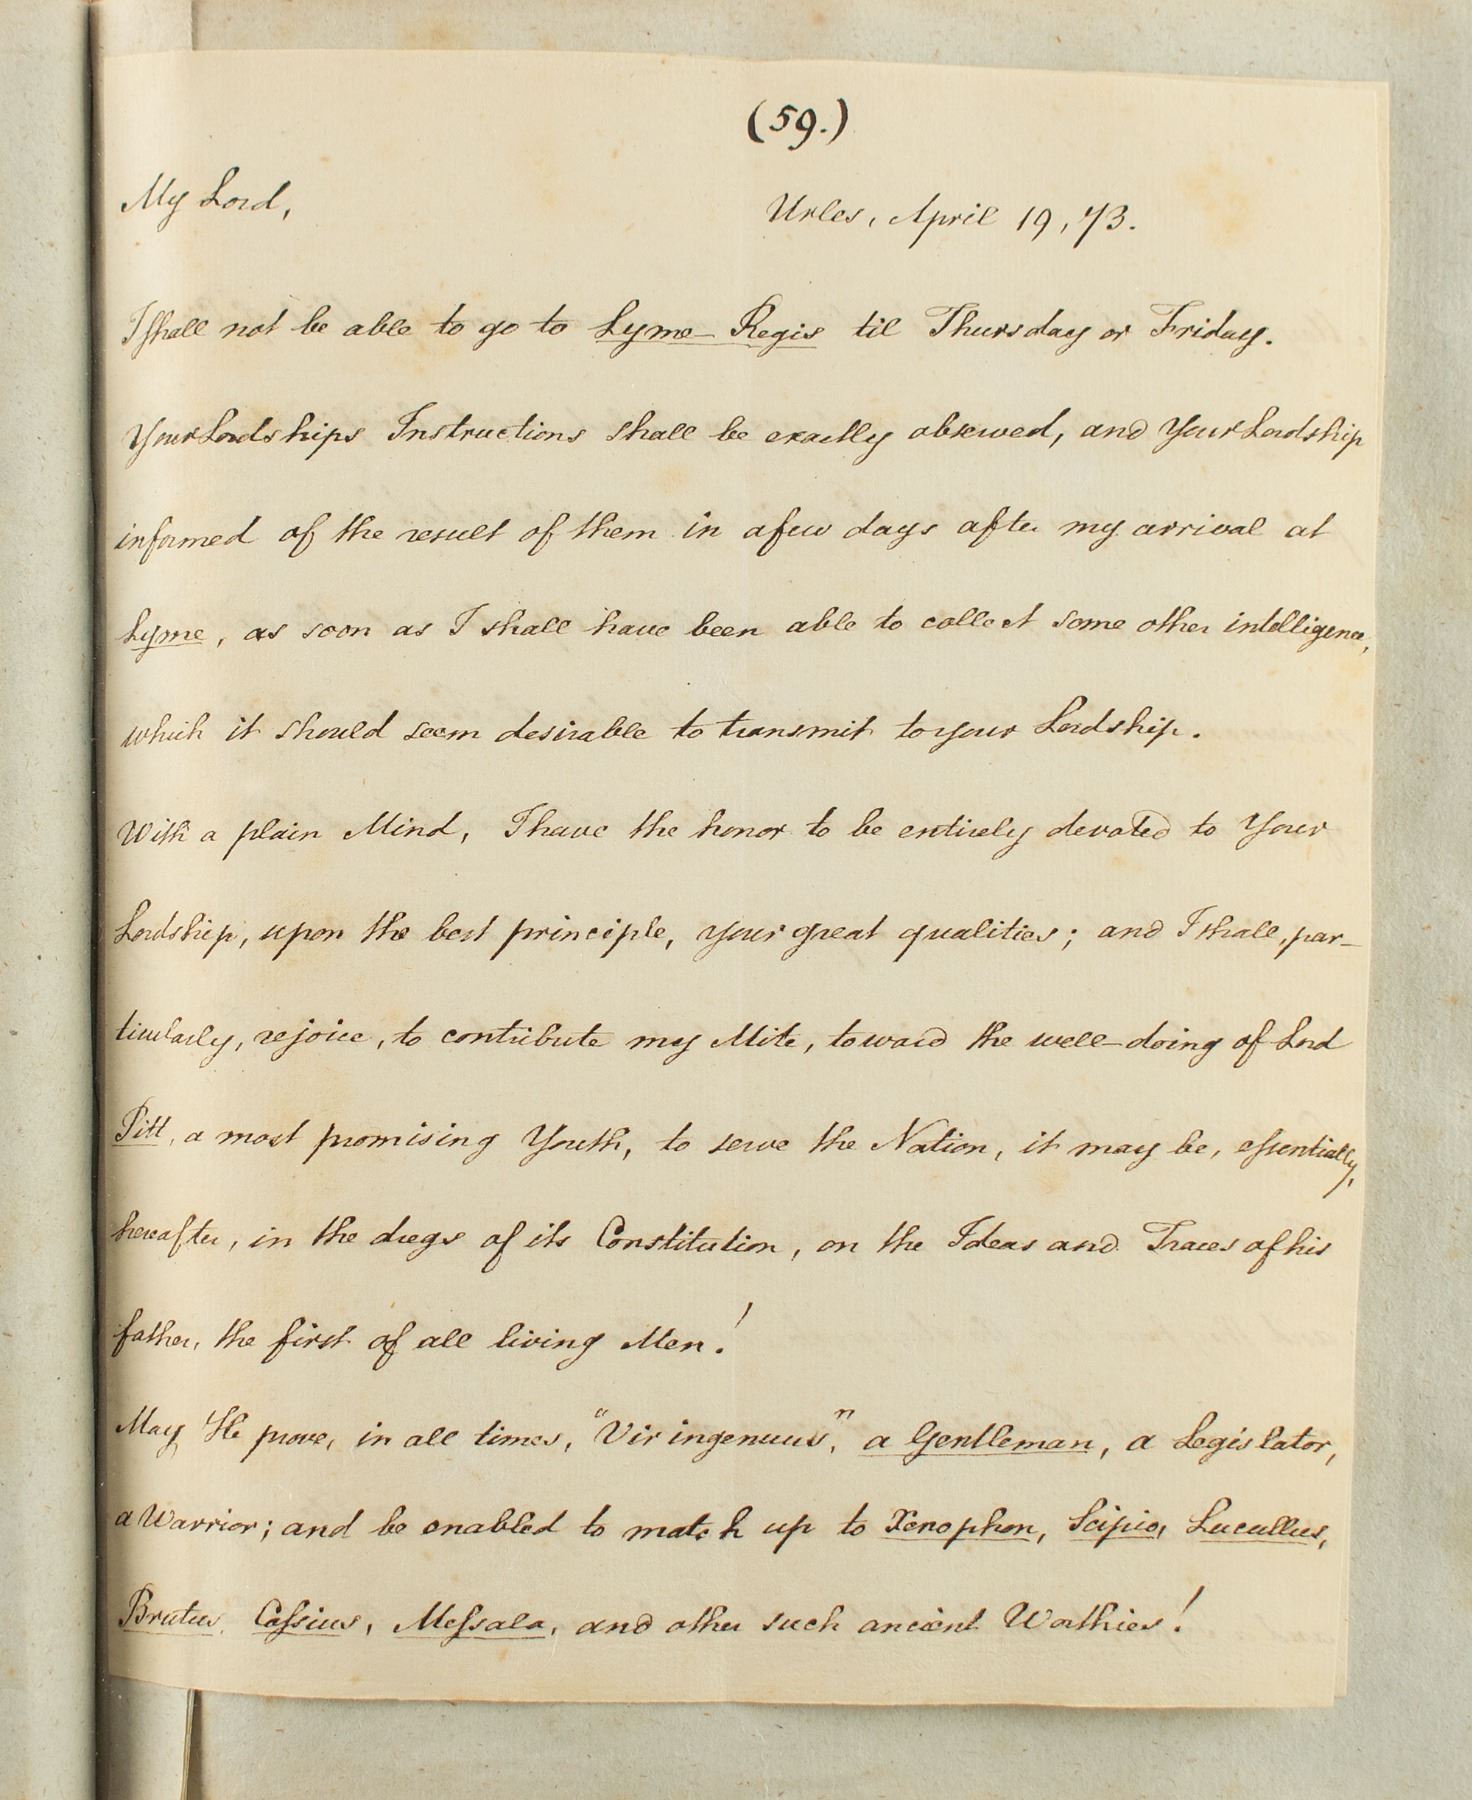 (59.)
My Lord,
Urles, April 19, 73.
I shall not be able to go to Lyme-Regis til Thursday or Friday.
Your Lordships Instructions shall be exactly observed, and Your Lordship
informed of the result of them in a few days after my arrival at
Lyme, as soon as I shall have been able to collect some other intelligence,
which it should seem desirable to transmit to your Lordship.
With a plain Mind, I have the honor to be entirely devoted to Your
Lordship, upon the best principle, your great qualities; and I shall, par-
ticularly, rejoice, to contribute my Mite, toward the well-doing of Lord
Pitt, a most promising Youth, to serve the Nation, it may be, essentially,
hereafter, in the dregs of its Constitution, on the Ideas and Traces of his
father, the first of all living Men!
May He prove, in all times, "Vir ingenuus", a Gentleman, a Legislator,
a Warrior; and be enabled to match up to Xenophon, Scipio, Lucullus,
Brutus, Cassius, Messala, and other such ancient Worthies!